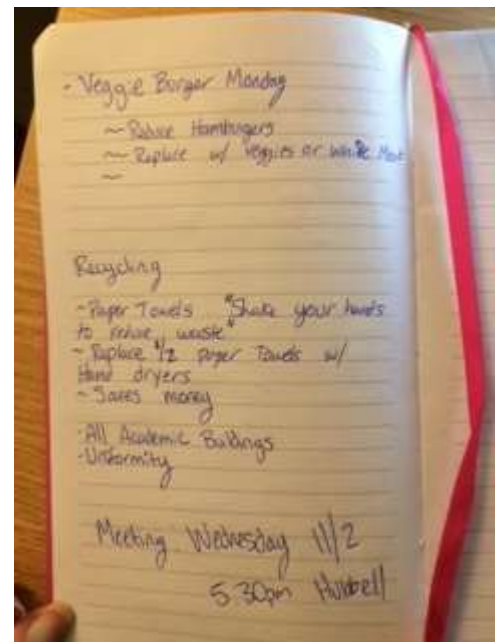 - Veggie Burger Monday
~ Reduce Hamburgers
~ Replace w/ Veggies or White Meat
~
Recycling
- Paper Towels "Shake your hands
to reduce waste"
- Replace 1/2 paper Towels w/
Hand dryers
- Saves money
- All Academic Buildings
- Uniformity
Meeting Wednesday 11/2
5:30pm Hubbell